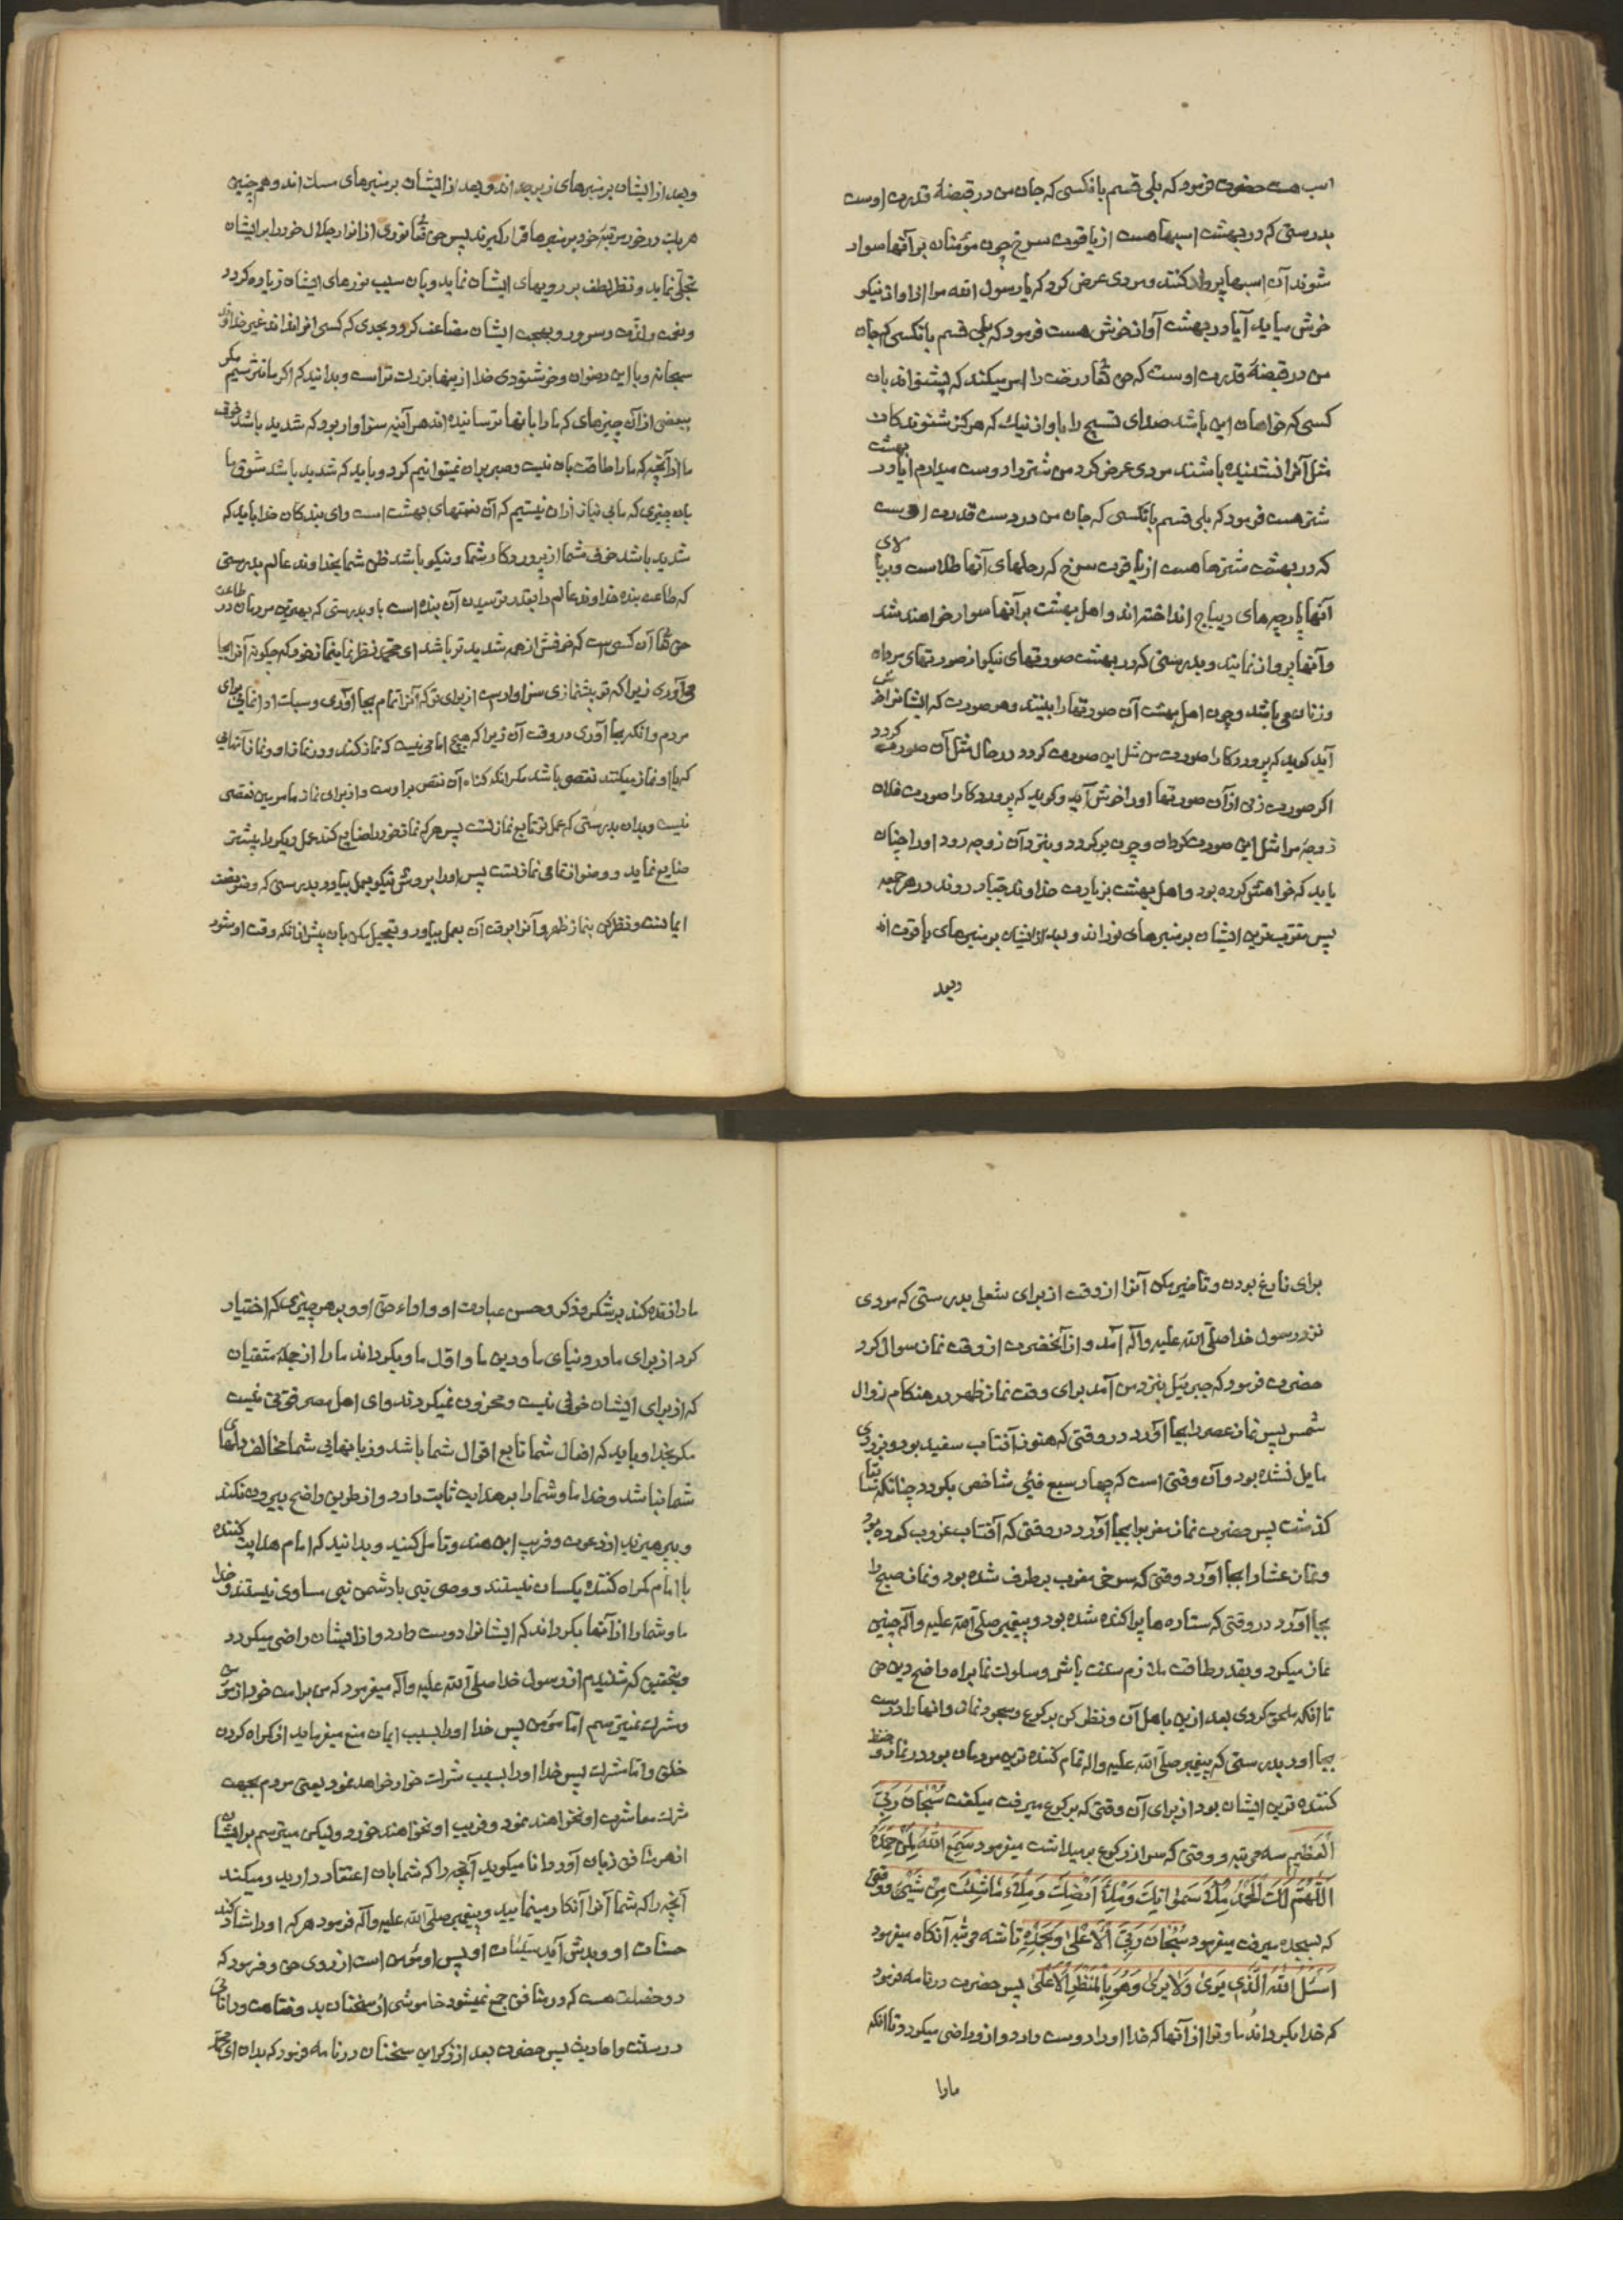 اسب هست حضرت فرمود که بلی قسم بانکسی که جان من در قبضهٔ قدرت اوست
بدرستی که در بهشت اسبها هست از یاقوت سرخ چون مؤمنان بر آنها سوار
شوند آن اسبها پرواز کنند و مردی عرض کرد که یا رسول الله مرا از اواز نیکو
خوش میاید آیا در بهشت آواز خوش هست فرمود که بلی قسم بانکسی که جان
من در قبضهٔ قدرت اوست که حق تعالی درخت را امر میکند که بشنواند بان
کسی که خواهان این باشد صدای تسبیح را باواز نیک که هرکز شنوندکان
مثل آنرا نشنیده باشند مردی عرض کرد من شتر را دوست میدارم ایا در بهشت
شتر هست فرمود که بلی قسم بانکسی که جان من در دست قدرت اوست
که در بهشت شترها هست از یاقوت سرخ که رحلهای آنها طلاست و بر بالای
آنها پارچه های دیباج انداخته اند و اهل بهشت بر آنها سوار خواهند شد
و آنها پرواز نمایند و بدرستی که در بهشت صورتهای نیکو از صورتهای مردان
و زنان می باشد و چون اهل بهشت آن صورتها را بینند و هر صورت که ایشانرا خوش
آید کوید که پروردکارا صورت من مثل این صورت کردد در حال مثل آن صورت کردد
اکر صورت زنی از آن صورتها او را خوش آید و کوید که پروردکارا صورت فلان
زوجه مرا مثل این صورت کردان و چون برکردد و بنزد آن زوجه رود او را چنان
یابد که خواهش کرده بود و اهل بهشت بزیارت خداوند جبار روند در هر جمعه
پس مقرب ترین ایشان بر منبرهای نور اند و بعد از ایشان بر منبرهای یاقوت اند
وبعد
وبعد از ایشان بر منبرهای زبرجد اند و بعد از ایشان بر منبرهای مسک اند و هم چنین
هر یک در خور مرتبه خود بر منبرها قرار کیرند پس حق تعالی نوری از انوار جلال خود را بر ایشان
تجلی نماید و نظر لطف بر رویهای ایشان نماید و بان سبب نورهای ایشان زیاده کردد
و نعمت و لذت و سرور و بهجت ایشان مضاعف کردد بحدی که کسی انرا نداند غیر خداوند
سبحانه و با این رضوان و خوشنودی خدا از اینها بزرک تر است و بدانید که اکر ما نترسیم مکر
ببعضی از آن چیزهای که ما را بانها ترسانیده اند هر آینه سزاوار بود که شدید باشد خوف
ما از آنچه که ما را طاقت بان نیست و صبر بران نمیتوانیم کرد و باید که شدید باشد شوق ما
بان چیزی که ما بی نیاز از ان نیستیم که آن نعمتهای بهشت است و ای بندکان خدا باید که
شدید باشد خوف شما از پروردکار شما و نیکو باشد ظن شما بخداوند عالم بدرستی
که طاعت بنده خداوند عالم را بقدر ترسیدن آن بنده است باو بدرستی که بهترین مردمان در طاعت
حق تعالی آن کسی است که خوفش از همه شدیدتر باشد ای محمد نظر نما بنماز خود که چکونه آنرا بجا
می آوری زیرا که تو پیشنمازی سزاوار است از برای تو که آنرا تمام بجا آوری و سبک ادا ننمائی برای
مردم وانکه بجا آوری در وقت آن زیرا که هیچ امامی نیست که نماز کند و در نماز او و نماز آنهائی
که با او نماز میکنند نقصی باشد مکر انکه کناه آن نقص بر اوست و از برای نماز مامومین نقصی
نیست و بدان بدرستی که عمل تو تابع نماز تست پس هر که نماز خود را ضایع کند عمل دیکر را بیشتر
ضایع نماید و وضو از تمامی نماز تست پس او را بروش نیکو بعمل بیاور بدرستی که وضو نصف
ایمانست و نظر کن بنماز ظهر و آنرا بوقت آن بعمل بیاور و تعجیل مکن بان پیش از انکه وقت او شود
برای فارغ بودن و تاخیر مکن آنرا از وقت از برای شغلی بدرستی که مردی
نزد رسول خدا صلی الله علیه وآله آمد و از آنحضرت از وقت نماز سوال کرد
حضرت فرمود که جبرئیل بنزد من آمد برای وقت نماز ظهر در هنکام زوال
شمس پس نماز عصر را بجا آورد در وقتی که هنوز آفتاب سفید بود و بزردی
مایل نشده بود و آن وقتی است که چهار سبع فیئی شاخص بکردد چنانکه سابقا
کذشت پس حضرت نماز مغرب را بجا آورد در وقتی که آفتاب غروب کرده بود
و نماز عشا را بجا آورد وقتی که سرخی مغرب برطرف شده بود و نماز صبح را
بجا آورد در وقتی که ستاره ها پراکنده شده بود و پیغمبر صلی الله علیه وآله چنین
نماز میکرد و بقدر طاقت ملازم سنت باش و سلوک نما براه واضح دین حق
تا انکه ملحق کردی بعد ازین باهل آن و نظر کن برکوع و سجود نماز و انها را درست
بجا اور بدرستی که پیغمبر صلی الله علیه واله تمام کننده ترین مردمان بود در نماز و حفظ
کننده ترین ایشان بود از برای آن وقتی که برکوع میرفت میکفت سُبْحَانَ رَبِّیَ
الْعَظِیمِ سه مرتبه و وقتی که سر از رکوع برمیداشت میفرمود سَمِعَ اللّٰهُ لِمَنْ حَمِدَهُ
اَللّٰهُمَّ لَکَ الْحَمْدُ مِلْأَ سَمٰوَاتِکَ وَمِلْأَ اَرْضِکَ وَمِلْأَ مَا شِئْتَ مِنْ شَیْئٍ و وقتی
که بسجده میرفت میفرمود سُبْحَانَ رَبِّیَ الْاَعْلٰی وَبِحَمْدِهِ تا سه مرتبه آنکاه میفرمود
اَسْئَلُ اللّٰهَ الَّذِی یَرٰی وَلَا یُرٰی وَهُوَ بِالْمَنْظَرِ الْاَعْلٰی پس حضرت در نامه فرمود
که خدا بکرداند ما و ترا از آنها که خدا او را دوست دارد و از و راضی میکردد تا انکه
مارا
ما را زنده کند بر شکر و ذکر و حسن عبادت او و اداء حق او و بر هر چیزی که اختیار
کرد از برای ما در دنیای ما و دین ما و اول ما و بکرداند ما را از جمله متقیان
که از برای ایشان خوفی نیست و محزون نمیکردند و ای اهل مصر قوتی نیست
مکر بخدا و باید که افعال شما تابع اقوال شما باشد و زبانهایی شما مخالف دلهای
شما نباشد و خدا ما و شما را بر هدایت ثابت دارد و از طریق واضح بیرون نکند
و بپرهیزید از دعوت و فریب ابن هند و تامل کنید و بدانید که امام هدایت کننده
با امام کمراه کننده یکسان نیستند و وصی نبی با دشمن نبی مساوی نیستند و خدا
ما و شما را از آنها بکرداند که ایشانرا دوست دارد و از ایشان راضی میکردد
و بتحقیق که شنیدم از رسول خدا صلی الله علیه وآله میفرمود که من بر امت خود از مؤمن
و مشرک نمیترسم اما مؤمن پس خدا او را بسبب ایمان منع میفرماید از کمراه کردن
خلق و اما مشرک پس خدا او را بسبب شرک خوار خواهد نمود یعنی مردم بجهت
شرک معاشرت او نخواهند نمود و فریب او نخواهند خورد ولیکن میترسم بر ایشان
از هر منافق زبان آور دانا میکوید آنچه را که شما بان اعتقاد دارید و میکند
آنچه را که شما آنرا انکار مینمایید و پیغمبر صلی الله علیه وآله فرمود هر که او را شاد کند
حسنات او و بدش آید سیئات او پس او مؤمن است از روی حق و فرمود که
دو خصلت هست که در منافق جمع نمیشود خاموشی از سخنان بد و فقاهت و دانائی
در سنت و احادیث پس حضرت بعد از ذکر این سخنان در نامه فرمود که بدان ای محمد